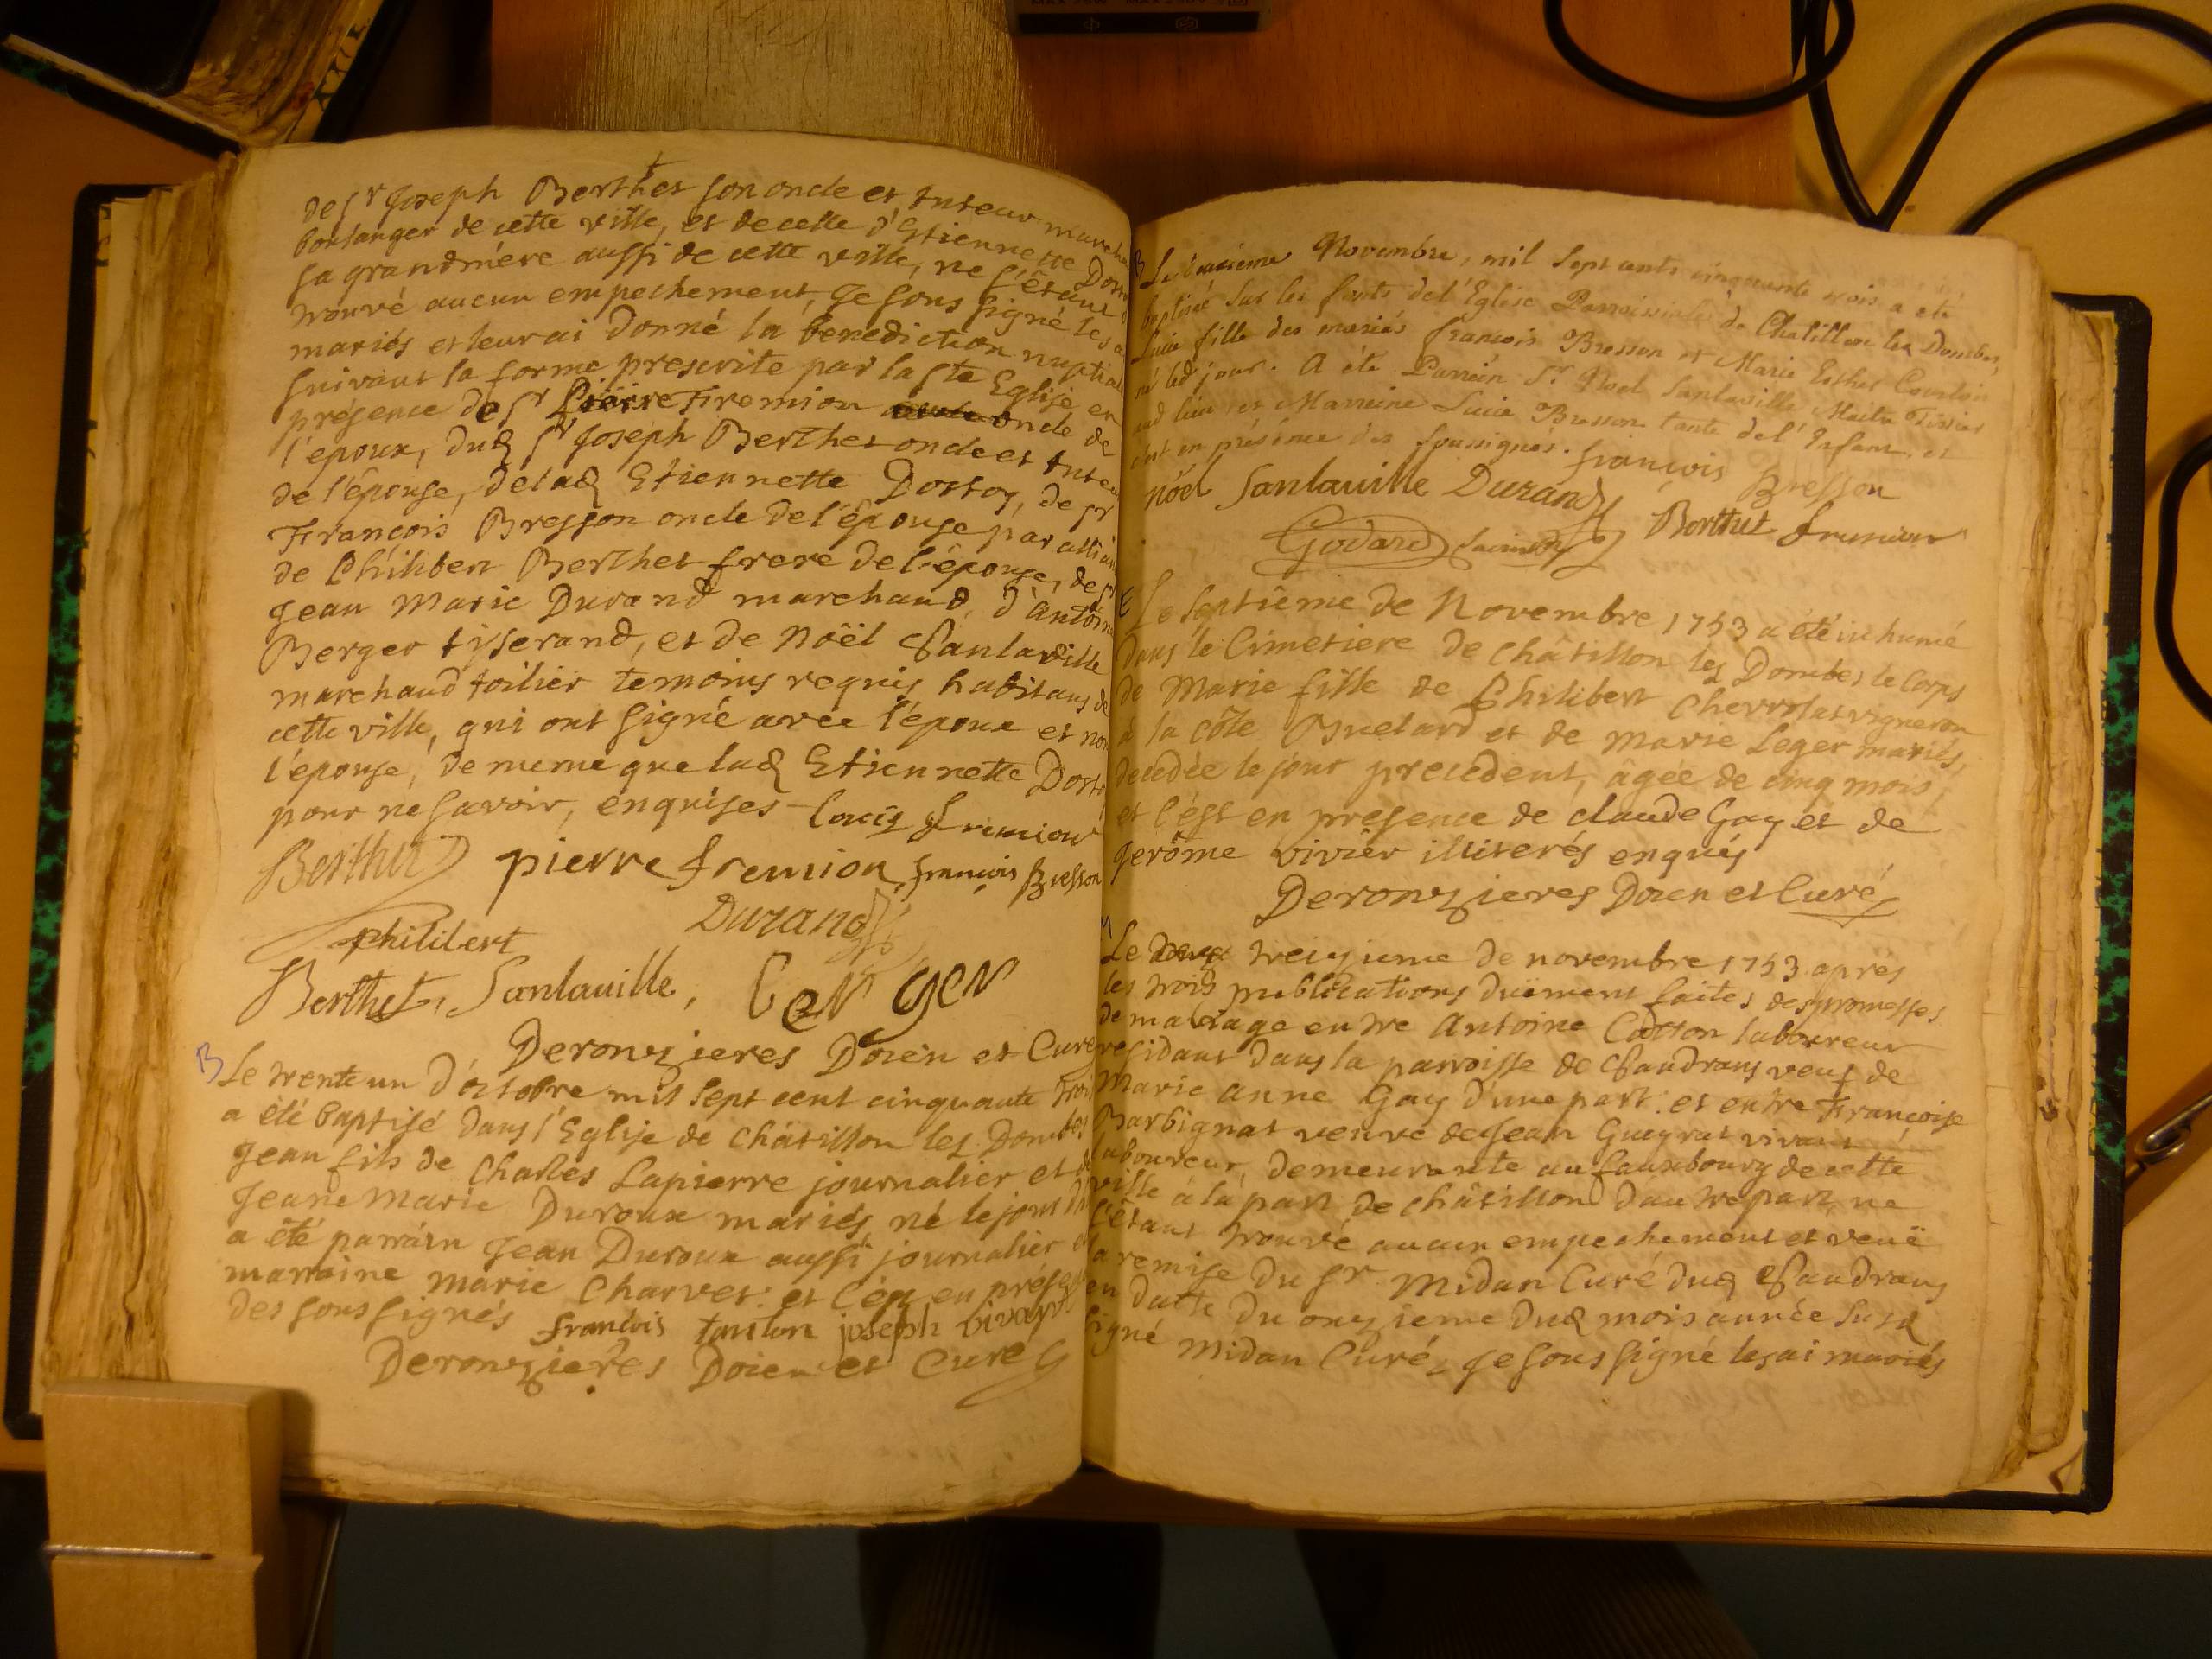 de sr Joseph Berthet son oncle et tuteur
boulanger de cette ville, et de celle d'Etiennette
sa grandmére aussi de cette ville, ne s'étant
trouvé aucun empechement, Je sous signé les
mariés et leur ai donné la benediction nuptiale
suivant la forme prescrite par la ste Eglise en
présence de sr Pierre Fremion oncle de
l'époux, dud sr Joseph Berthet oncle et tuteur
de l'épouse, de lad Etiennette Dortoy, de sr
François Bresson oncle de l'épouse par
de Philibert Berthet frere de l'épouse, de sr
Jean Marie Durand marchand, d'Antoine
Berger tisserand, et de Noël Sanlaville
marchand toilier temoins requis habitans de
cette ville, qui ont signé avec l'époux et non
l'epouse, de meme que lad Etiennette
pour ne savoir, enquises Louis fremion
Berthet pierre fremion, françois Bresson
Durand
philibert
Berthet, Sanlauille, Ber ger
Deronzieres Doien et Curé
B Le trente un d'octobre mil sept cent cinquante trois
a été baptisé dans l'Eglise de Châtillon les Dombes
Jean fils de Charles Lapierre journalier et de
Jeane Marie Duroux mariés, né le jour
a été parrain Jean Duroux aussi journalier et
marraine marie Charvet: et c'est en
des sous signés françois joseph
Deronzieres Doien et Curé
B Le Novembre, mil sept cents cinquante trois a été
baptisée sur les fonts de l'Eglise Parroissiale de Chatillon les Dombes,
Lucie fille des mariés françois Bresson et Marie Esther
led jour. A été Parrein Sr. Noel Sanlaville Maitre Tissier
aud lieu, et Marreine Lucie Bresson tante de l'Enfant, et
c'est en présence des soussignés. françois Bresson
nöel Sanlauille Durand Berthet fremion
Godard
E Le septième de Novembre 1753 a été inhumé
dans le Cimetiere de châtillon les Dombes le corps
de Marie fille de Philibert vigneron
à la côte Buelard et de Marie Leger mariés,
decedée le jour precedent, âgée de cinq mois,
et c'est en presence de claude Gay et de
Jerôme vivier illiterés enquis
Deronzieres Doien et Curé
M Le treizieme de novembre 1753 aprés
les trois publications duëment faites des promesses
de mariage entre Antoine Cotton laboureur
residant dans la parroisse de Sandrans veuf de
Marie anne Gay d'une part: et entre Françoise
Barbignat veuve de Jean vivant
laboureur, demeurante au fauxbourg de cette
ville à la part de châtillon d'autre part, ne
s'étant trouvé aucun empechement et veuë
la remise du sr Midan Curé dud Sandrans
en datte du onzieme dud mois année susd
signé Midan Curé, Je sous signé les ai mariés